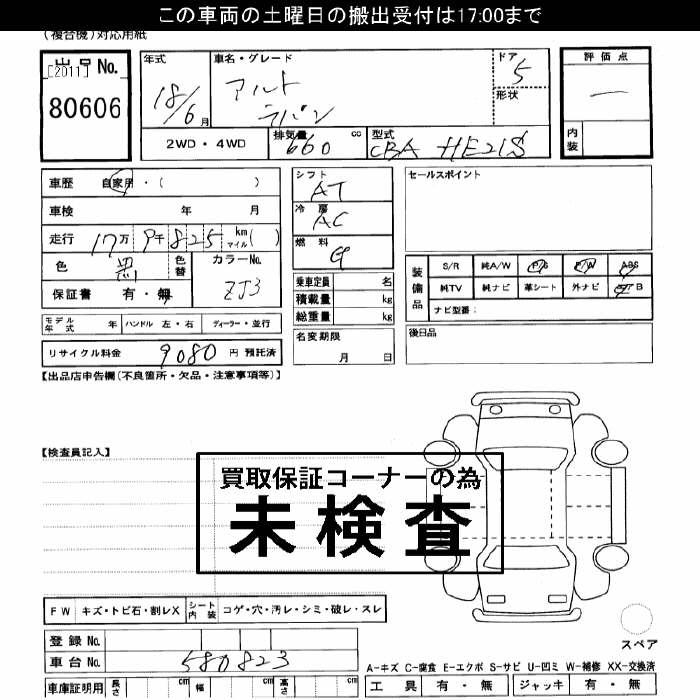 この車両の土曜日の搬出受付は17:00まで
(複合機)対応用紙
出品 No.
[2011]
80606
年式
18/6月
車名・グレード
アルト
ラパン
ドア
5
形状
評価点
ー
内装
2WD・4WD
排気量 660 cc
型式 CBA HE21S
車歴 自家用・( )
車検 年 月
走行 17万9千825 km マイル( )
色 黒
色替
カラーNo.
ZJ3
保証書 有・無
シフト
AT
冷房
AC
燃料
G
乗車定員 名
積載量 kg
総重量 kg
名変期限
月 日
セールスポイント
装備品
S/R 純A/W P/S P/W ABS
純TV 純ナビ 革シート 外ナビ B
ナビ型番:
後日品
モデル年式 年 ハンドル 左・右 ディーラー・並行
リサイクル料金 9080 円 預託済
【出品店申告欄(不良箇所・欠品・注意事項等)】
【検査員記入】
買取保証コーナーの為
未検査
FW キズ・トビ石・割レX シート内装 コゲ・穴・汚レ・シミ・破レ・スレ
登録 No.
車台 No. 580823
車庫証明用 長さ cm 幅 cm 高さ cm
スペア
A-キズ C-腐食 E-エクボ S-サビ U-凹ミ W-補修 XX-交換済
工具 有・無 ジャッキ 有・無